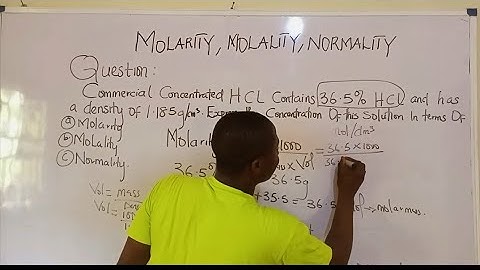 MOLARITY, MOLALITY, NORMALITY
Question:
Commercial Concentrated HCL Contains 36.5% HCL and has
a density of 1.185g/cm³. Express The Concentration Of This Solution In Terms Of
(a) Molarity
(b) Molality
(c) Normality.
mol/dm³
Molarity
1000
x Vol
= 36.5 x 1000
36.5
36.5g
+35.5 = 36.5
molar mass.
Vol = mass
Vol =